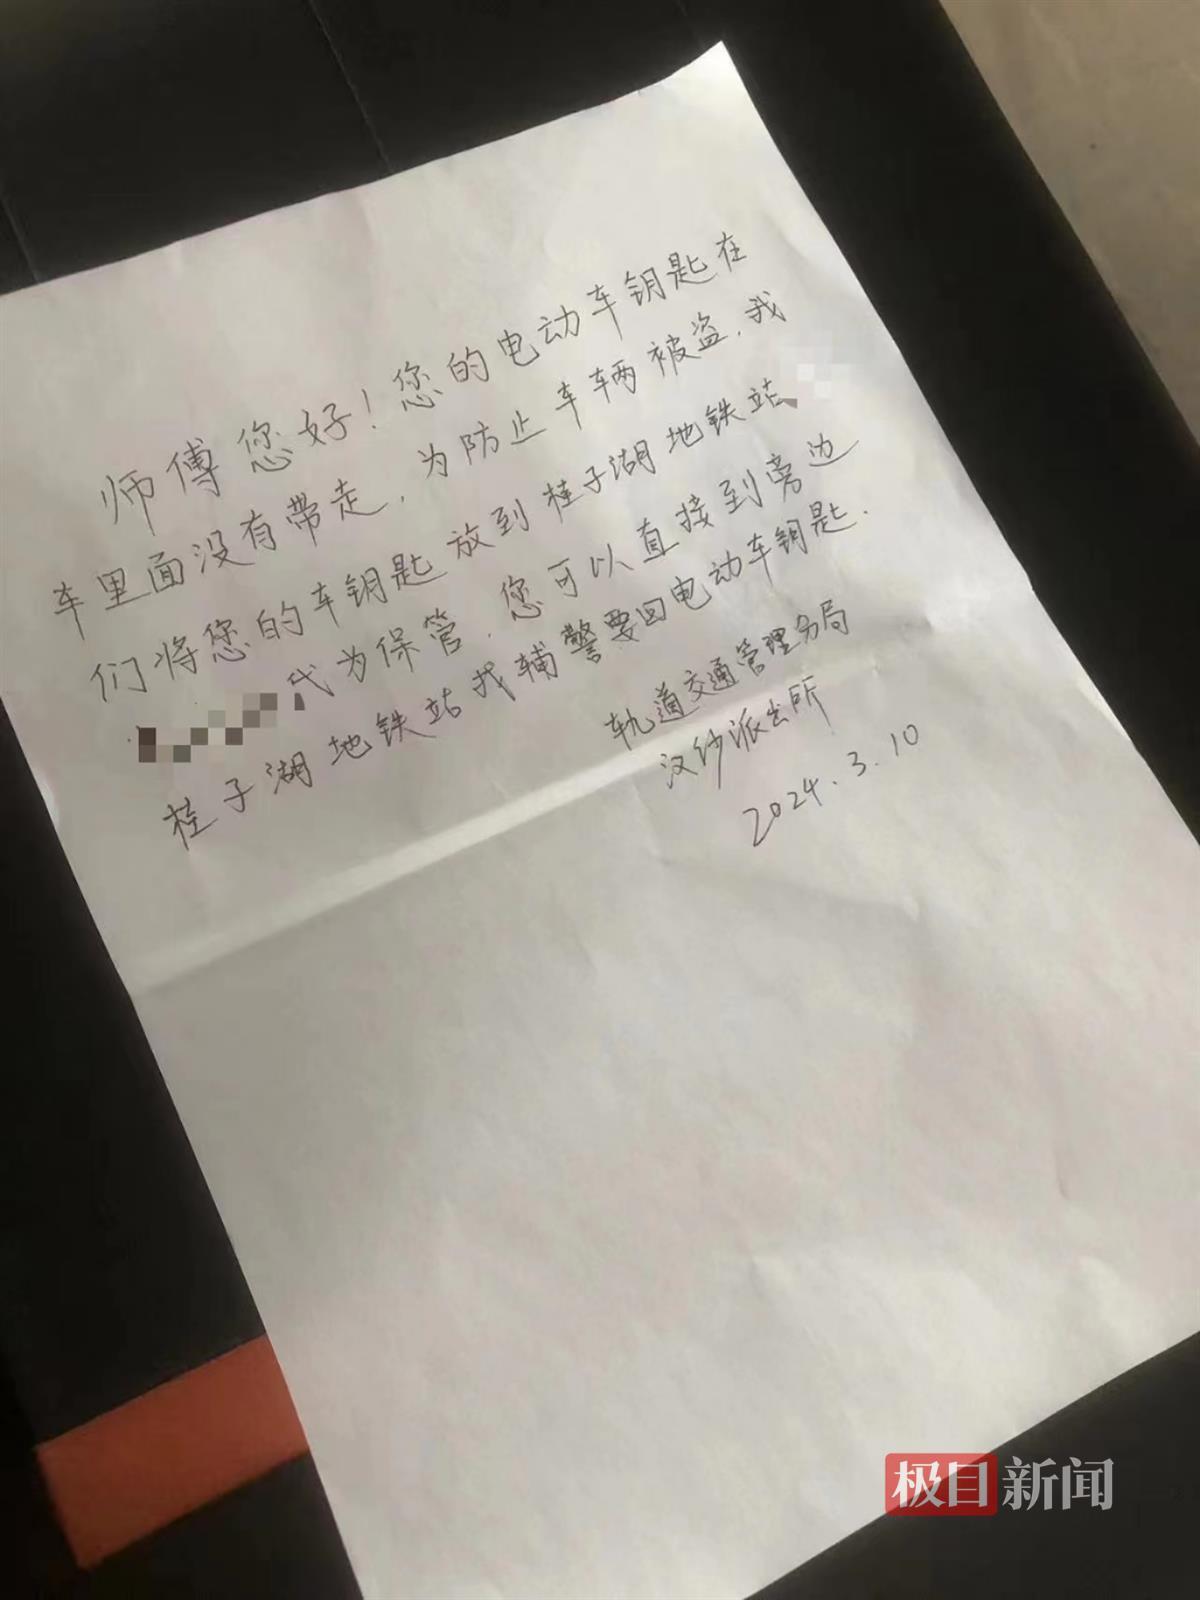 师傅您好！您的电动车钥匙在
车里面没有带走，为防止车辆被盗，我
们将您的车钥匙放到桂子湖地铁站
代为保管，您可以直接到旁边
桂子湖地铁站找辅警要回电动车钥匙.
轨道交通管理分局
汉纱派出所
2024.3.10
极目新闻